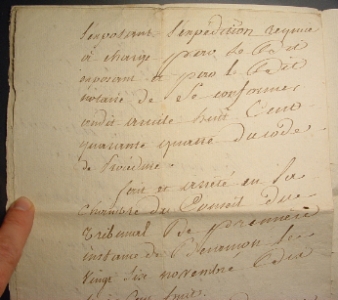 l'exposant l'expédition requise
à charge pour le dit
exposant et pour le dit
notaire de se conformer
audit article huit Cent
quarante quatre du code
de procedure.
fait et arrêté en la
Chambre du Conseil du
Tribunal de première
instance de
Vingt six novembre